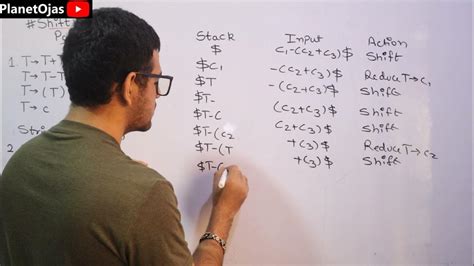 PlanetOjas
#Shift
Pa
1. T→T+
T→T-
T→(T)
T→c
Stri
2
Stack Input Action
$ c₁-(c₂+c₃)$ Shift
$c₁ -(c₂+c₃)$ Reduce T→c₁
$T -(c₂+c₃)$ Shift
$T- (c₂+c₃)$ Shift
$T-( c₂+c₃)$ Shift
$T-(c₂ +c₃)$ Reduce T→c₂
$T-(T +c₃)$ Shift
$T-(